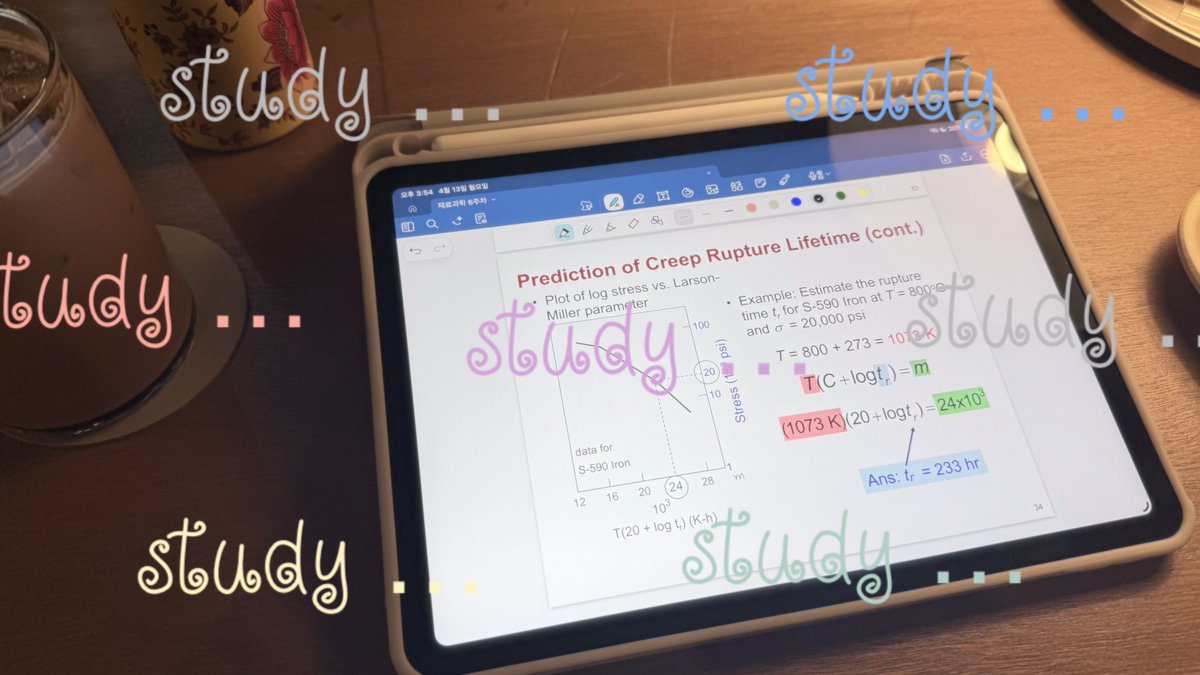 study ...
study ...
오후 3:54 4월 13일 월요일
20%
재료과학 6주차
33
Prediction of Creep Rupture Lifetime (cont.)
• Plot of log stress vs. Larson-
Miller parameter
100
20
10
1
Stress (10³ psi)
data for
S-590 Iron
12 16 20 24 28 m
10³
T(20 + log tr) (K-h)
• Example: Estimate the rupture
time tr for S-590 Iron at T = 800°C
and σ = 20,000 psi
T = 800 + 273 = 1073 K
T(C + log tr) = m
(1073 K)(20 + log tr) = 24x10³
Ans: tr = 233 hr
34
study ...
study ...
study ...
study ...
study ...